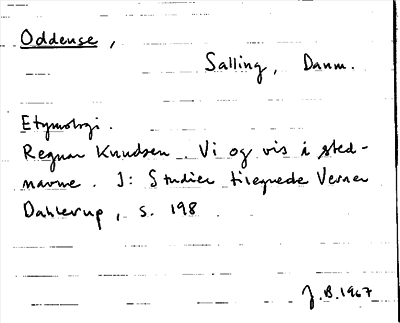 Oddense,
Salling, Danm.
Etymologi.
Regnar Knudsen. Vi og vis i sted-
navne. I: Studier tilegnede Verner
Dahlerup, s. 198
J.B. 1967